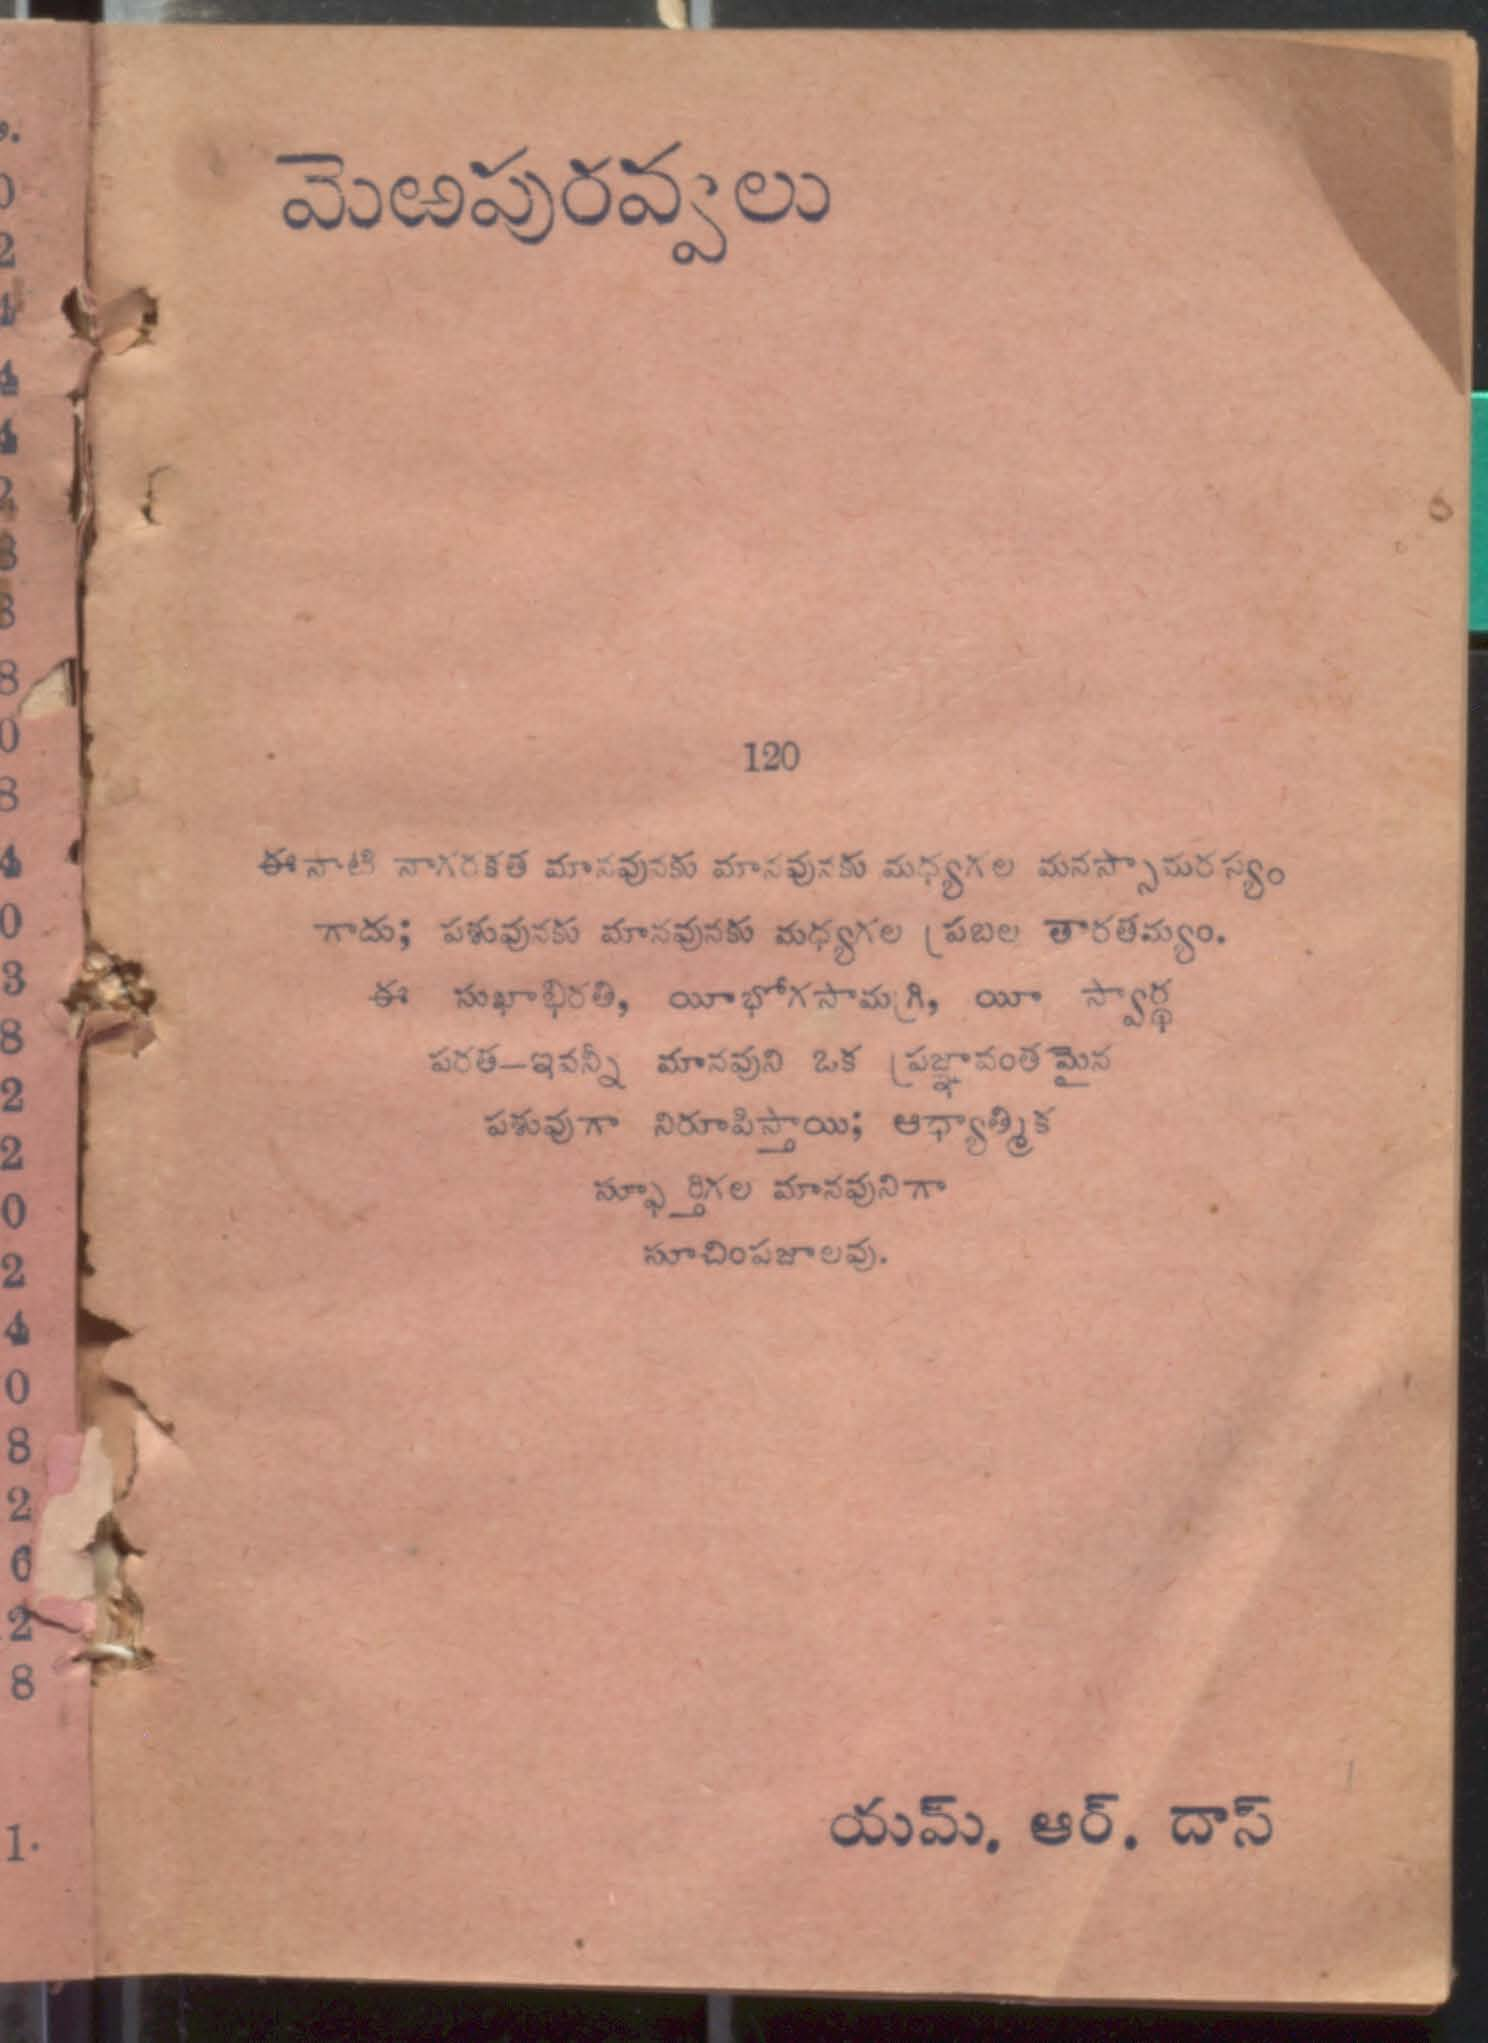 మెఱపురవ్వలు
120
ఈనాటి నాగరకత మానవునకు మానవునకు మధ్యగల మనస్సామరస్యం
గాదు; పశువునకు మానవునకు మధ్యగల ప్రబల తారతమ్యం.
ఈ సుఖాభిరతి, యీభోగసామగ్రి, యీ స్వార్థ
పరత—ఇవన్నీ మానవుని ఒక ప్రజ్ఞావంతమైన
పశువుగా నిరూపిస్తాయి; ఆధ్యాత్మిక
స్ఫూర్తిగల మానవునిగా
సూచింపజాలవు.
యమ్. ఆర్. దాస్
0
2
4
4
4
2
8
8
8
0
8
4
0
3
8
2
2
0
2
4
0
8
2
6
2
8
1.